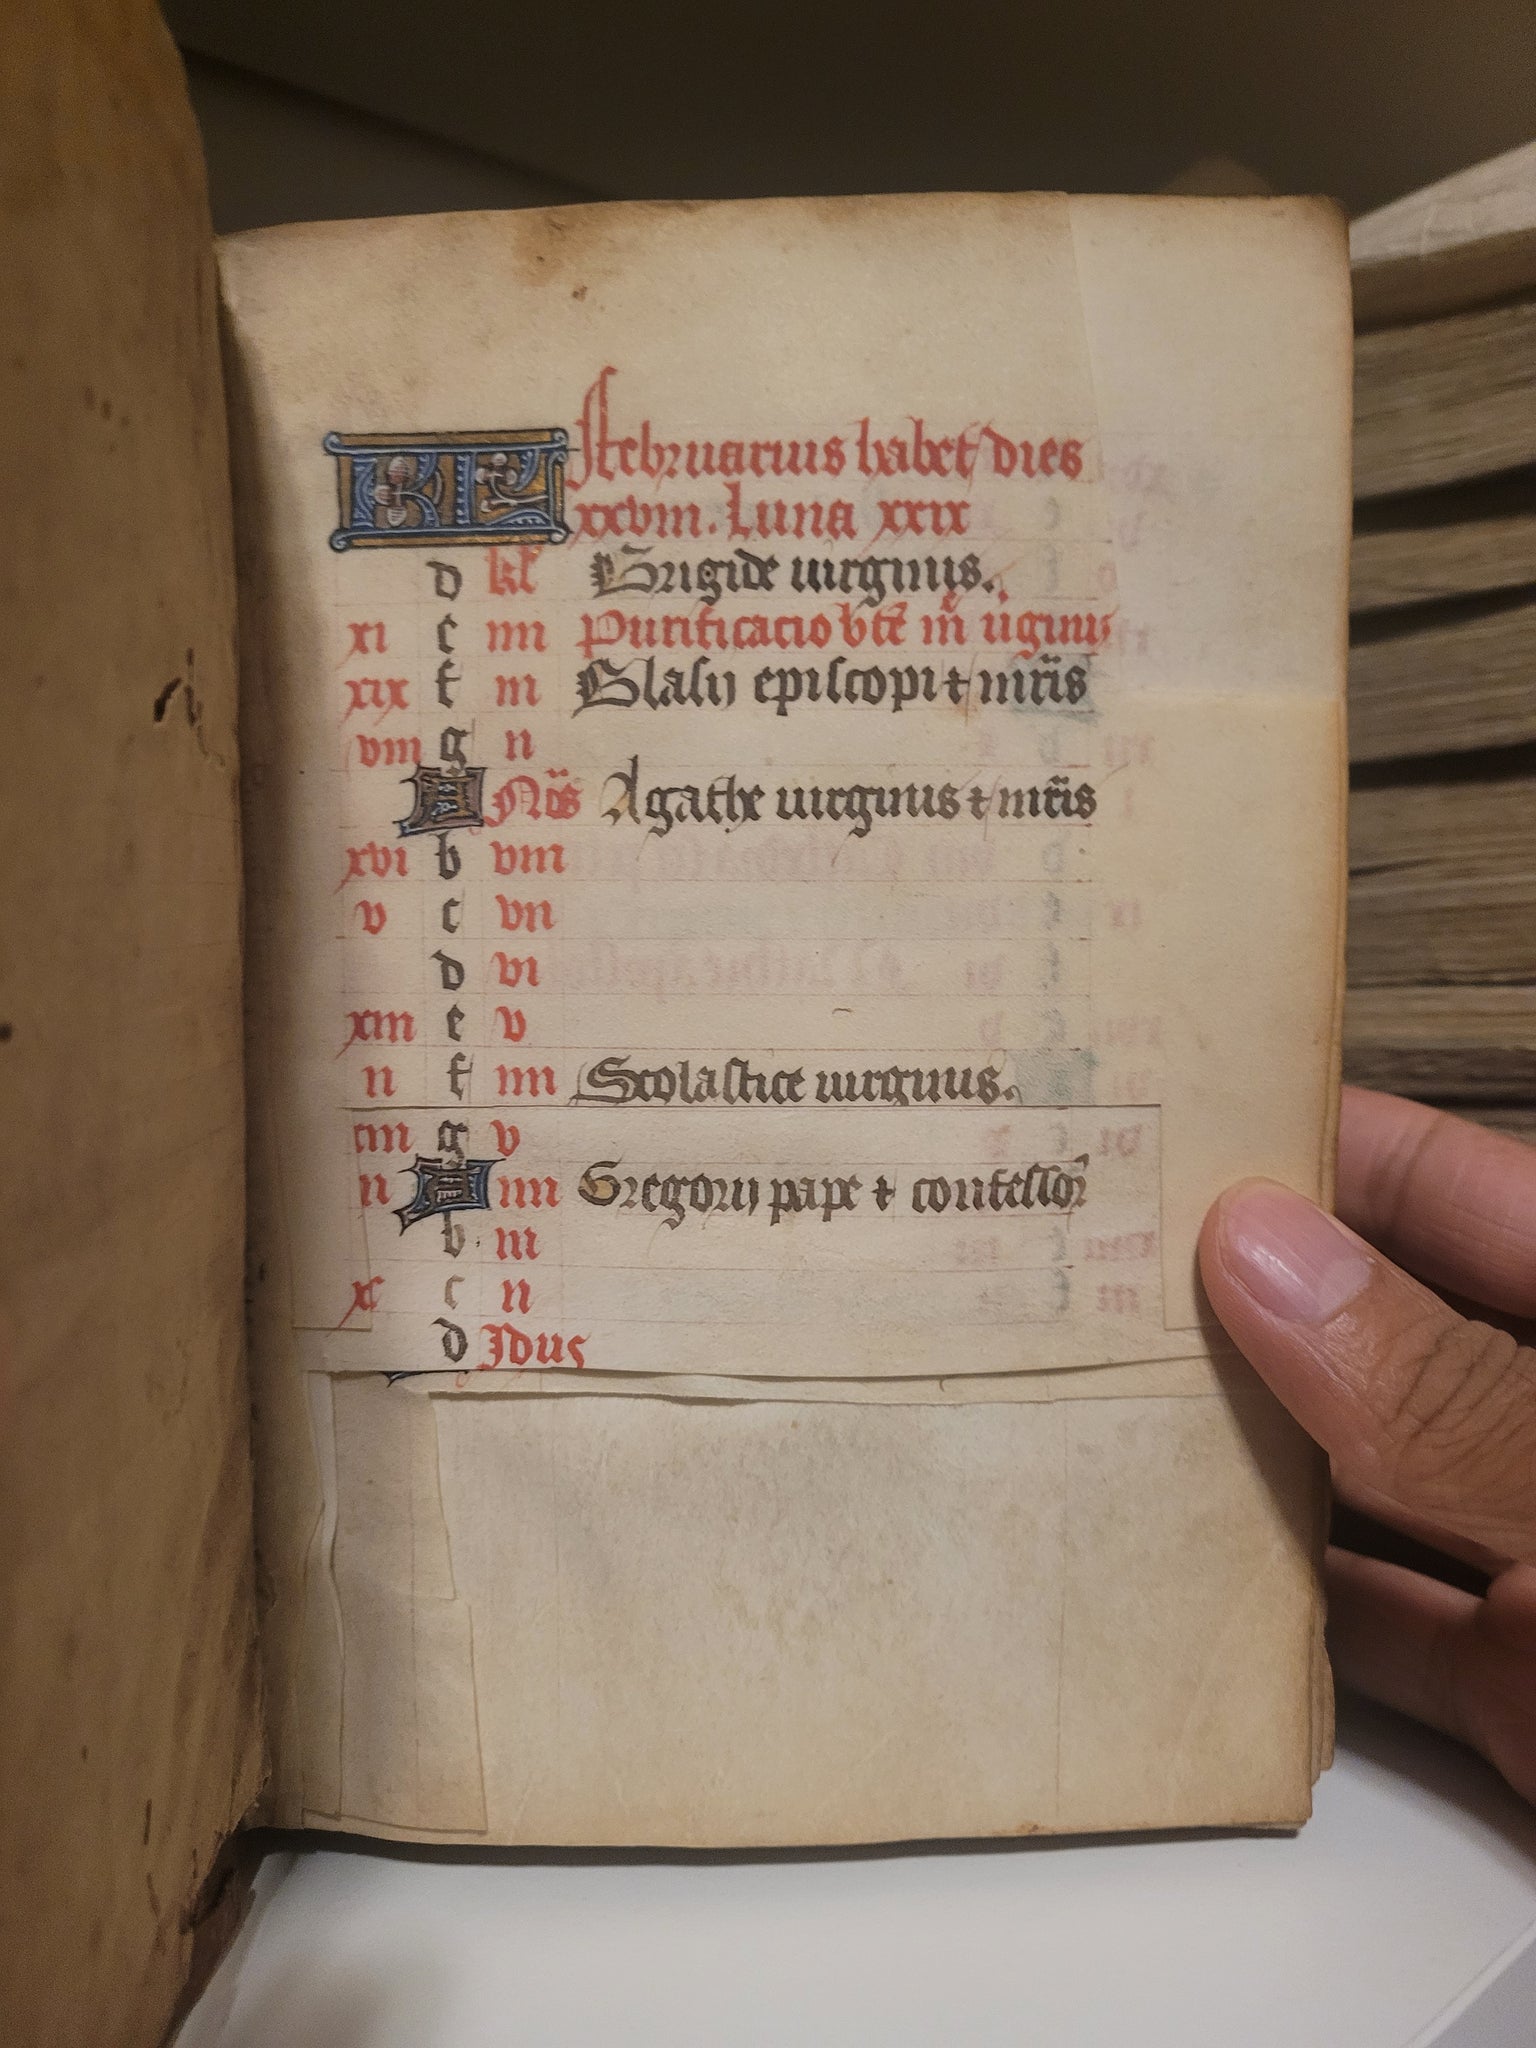 KL Februarius habet dies
xxviii. Luna xxix
d kl Brigide uirginis.
xi e iiii Purificacio bte m uginis
xix f iii Blasij episcopi & mris
viii g ii
A Nōs Agathe uirginis & mris
xvi b viii
v c vii
d vi
xiii e v
ii f iiii Scolastice uirginis.
g v
ii A iiii Gregorij pape & confessor
b iii
c ii
d Idus